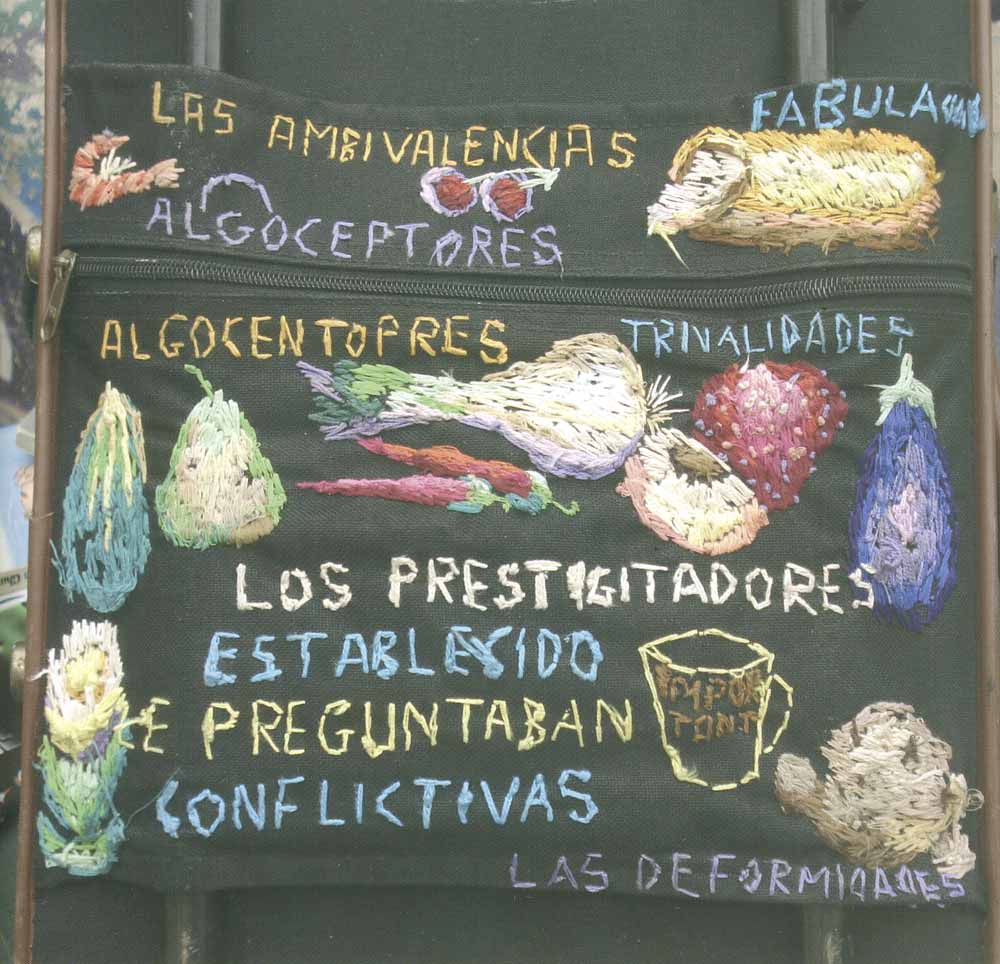 LAS AMBIVALENCIAS
ALGOCEPTORES
ALGOCENTOPRES
TRIVALIDADES
LOS PRESTIGITADORES
ESTABLECIDO
E PREGUNTABAN
IMPOR
TANT
CONFLICTIVAS
LAS DEFORMIDADES